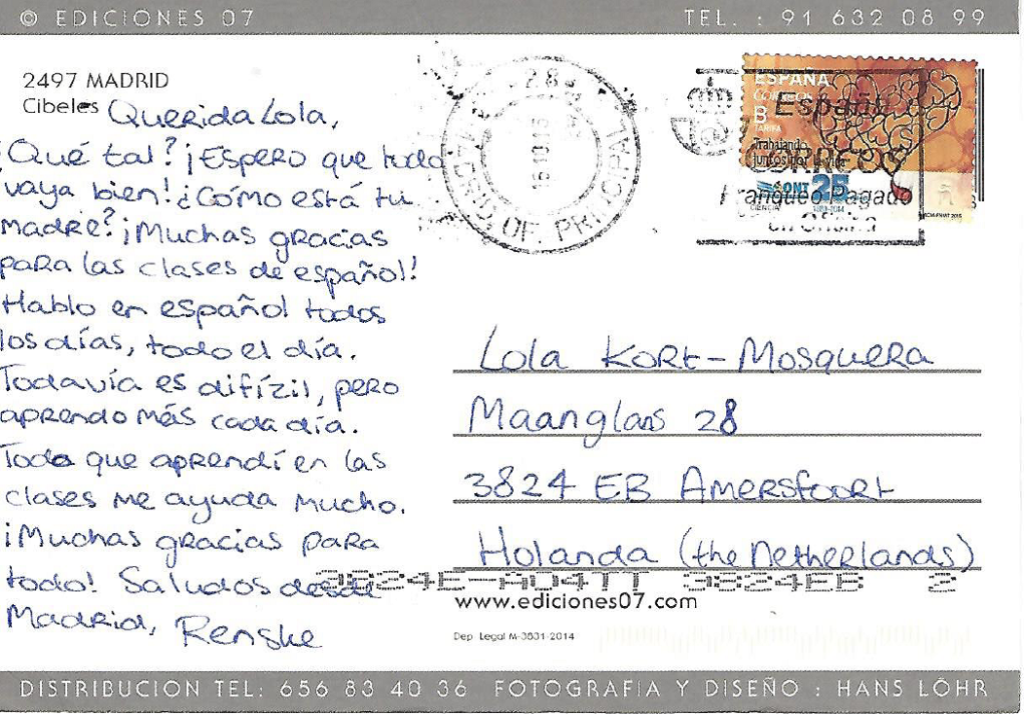 © EDICIONES 07
TEL. : 91 632 08 99
2497 MADRID
Cibeles
Querida Lola,
¿Qué tal? ¡Espero que todo
vaya bien! ¿Cómo está tu
madre? ¡Muchas gracias
para las clases de español!
Hablo en español todos
los días, todo el día.
Todavía es difízil, pero
aprendo más cada día.
Todo que aprendí en las
clases me ayuda mucho.
¡Muchas gracias para
todo! Saludos desde
Madrid, Renske
28
OF. PR
ESPAÑA
CORREOS
B
TARIFA
Trabajando
juntos por
ONT 25
CIENCIA
España
CORREOS
Franqueo Pagado
en Oficina
Lola Kort-Mosquera
Maanglans 28
3824 EB Amersfoort
Holanda (the Netherlands)
3824E-A04TT 3824EB 2
www.ediciones07.com
Dep. Legal M-3831-2014
DISTRIBUCION TEL: 656 83 40 36 FOTOGRAFIA Y DISEÑO : HANS LÖHR